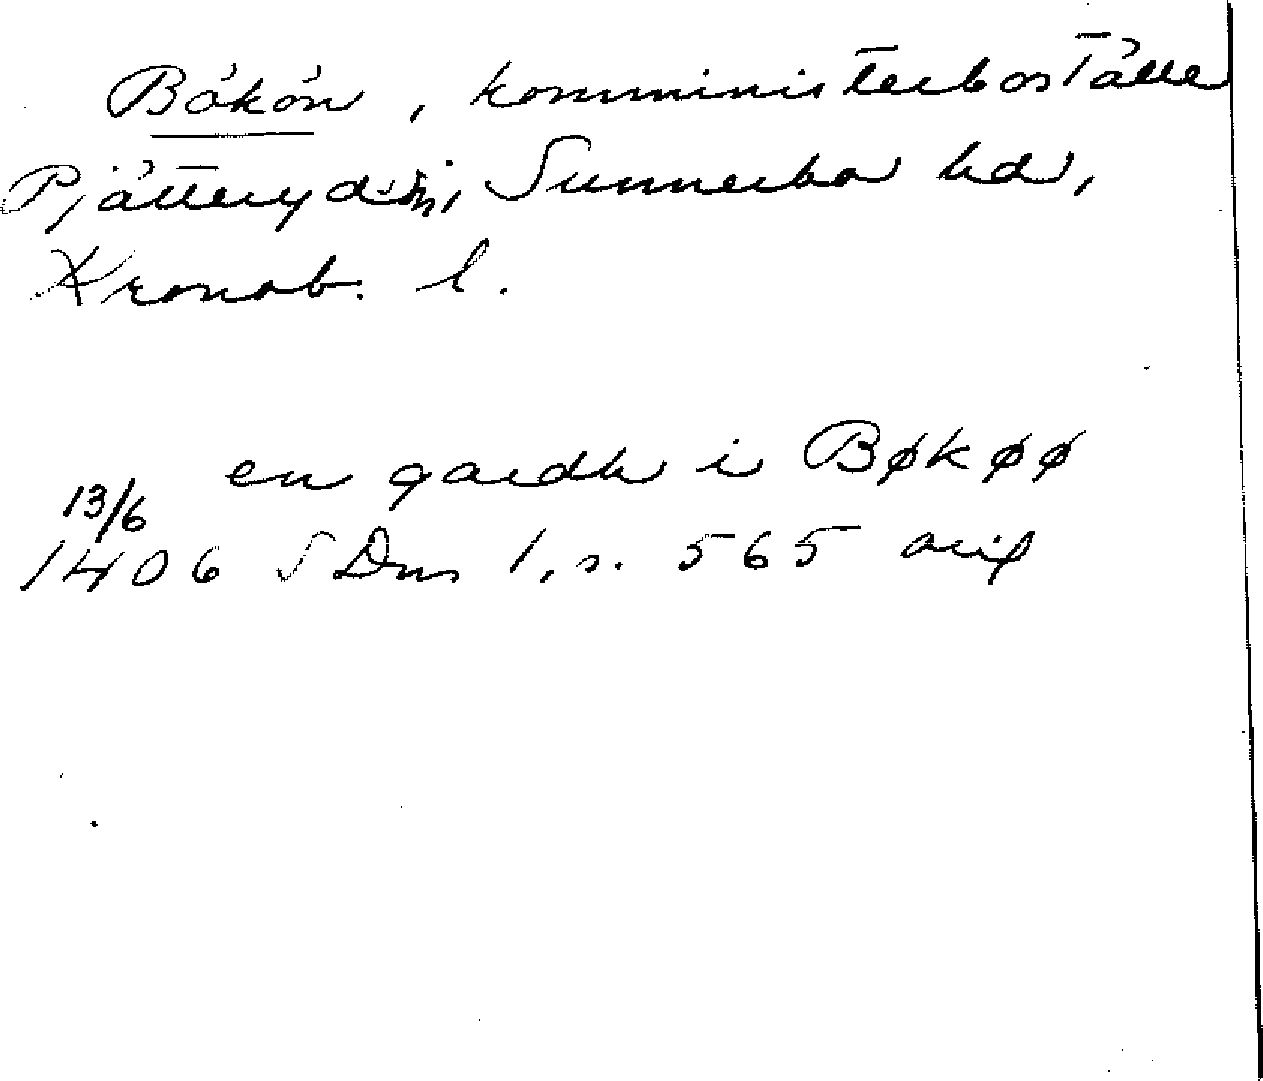 Bökön, komministerboställe
Pjätteryds sn, Sunnerbo hd,
Kronob. l.
en gardh i Bøkøø
13/6
1406 SDns 1, s. 565 orig